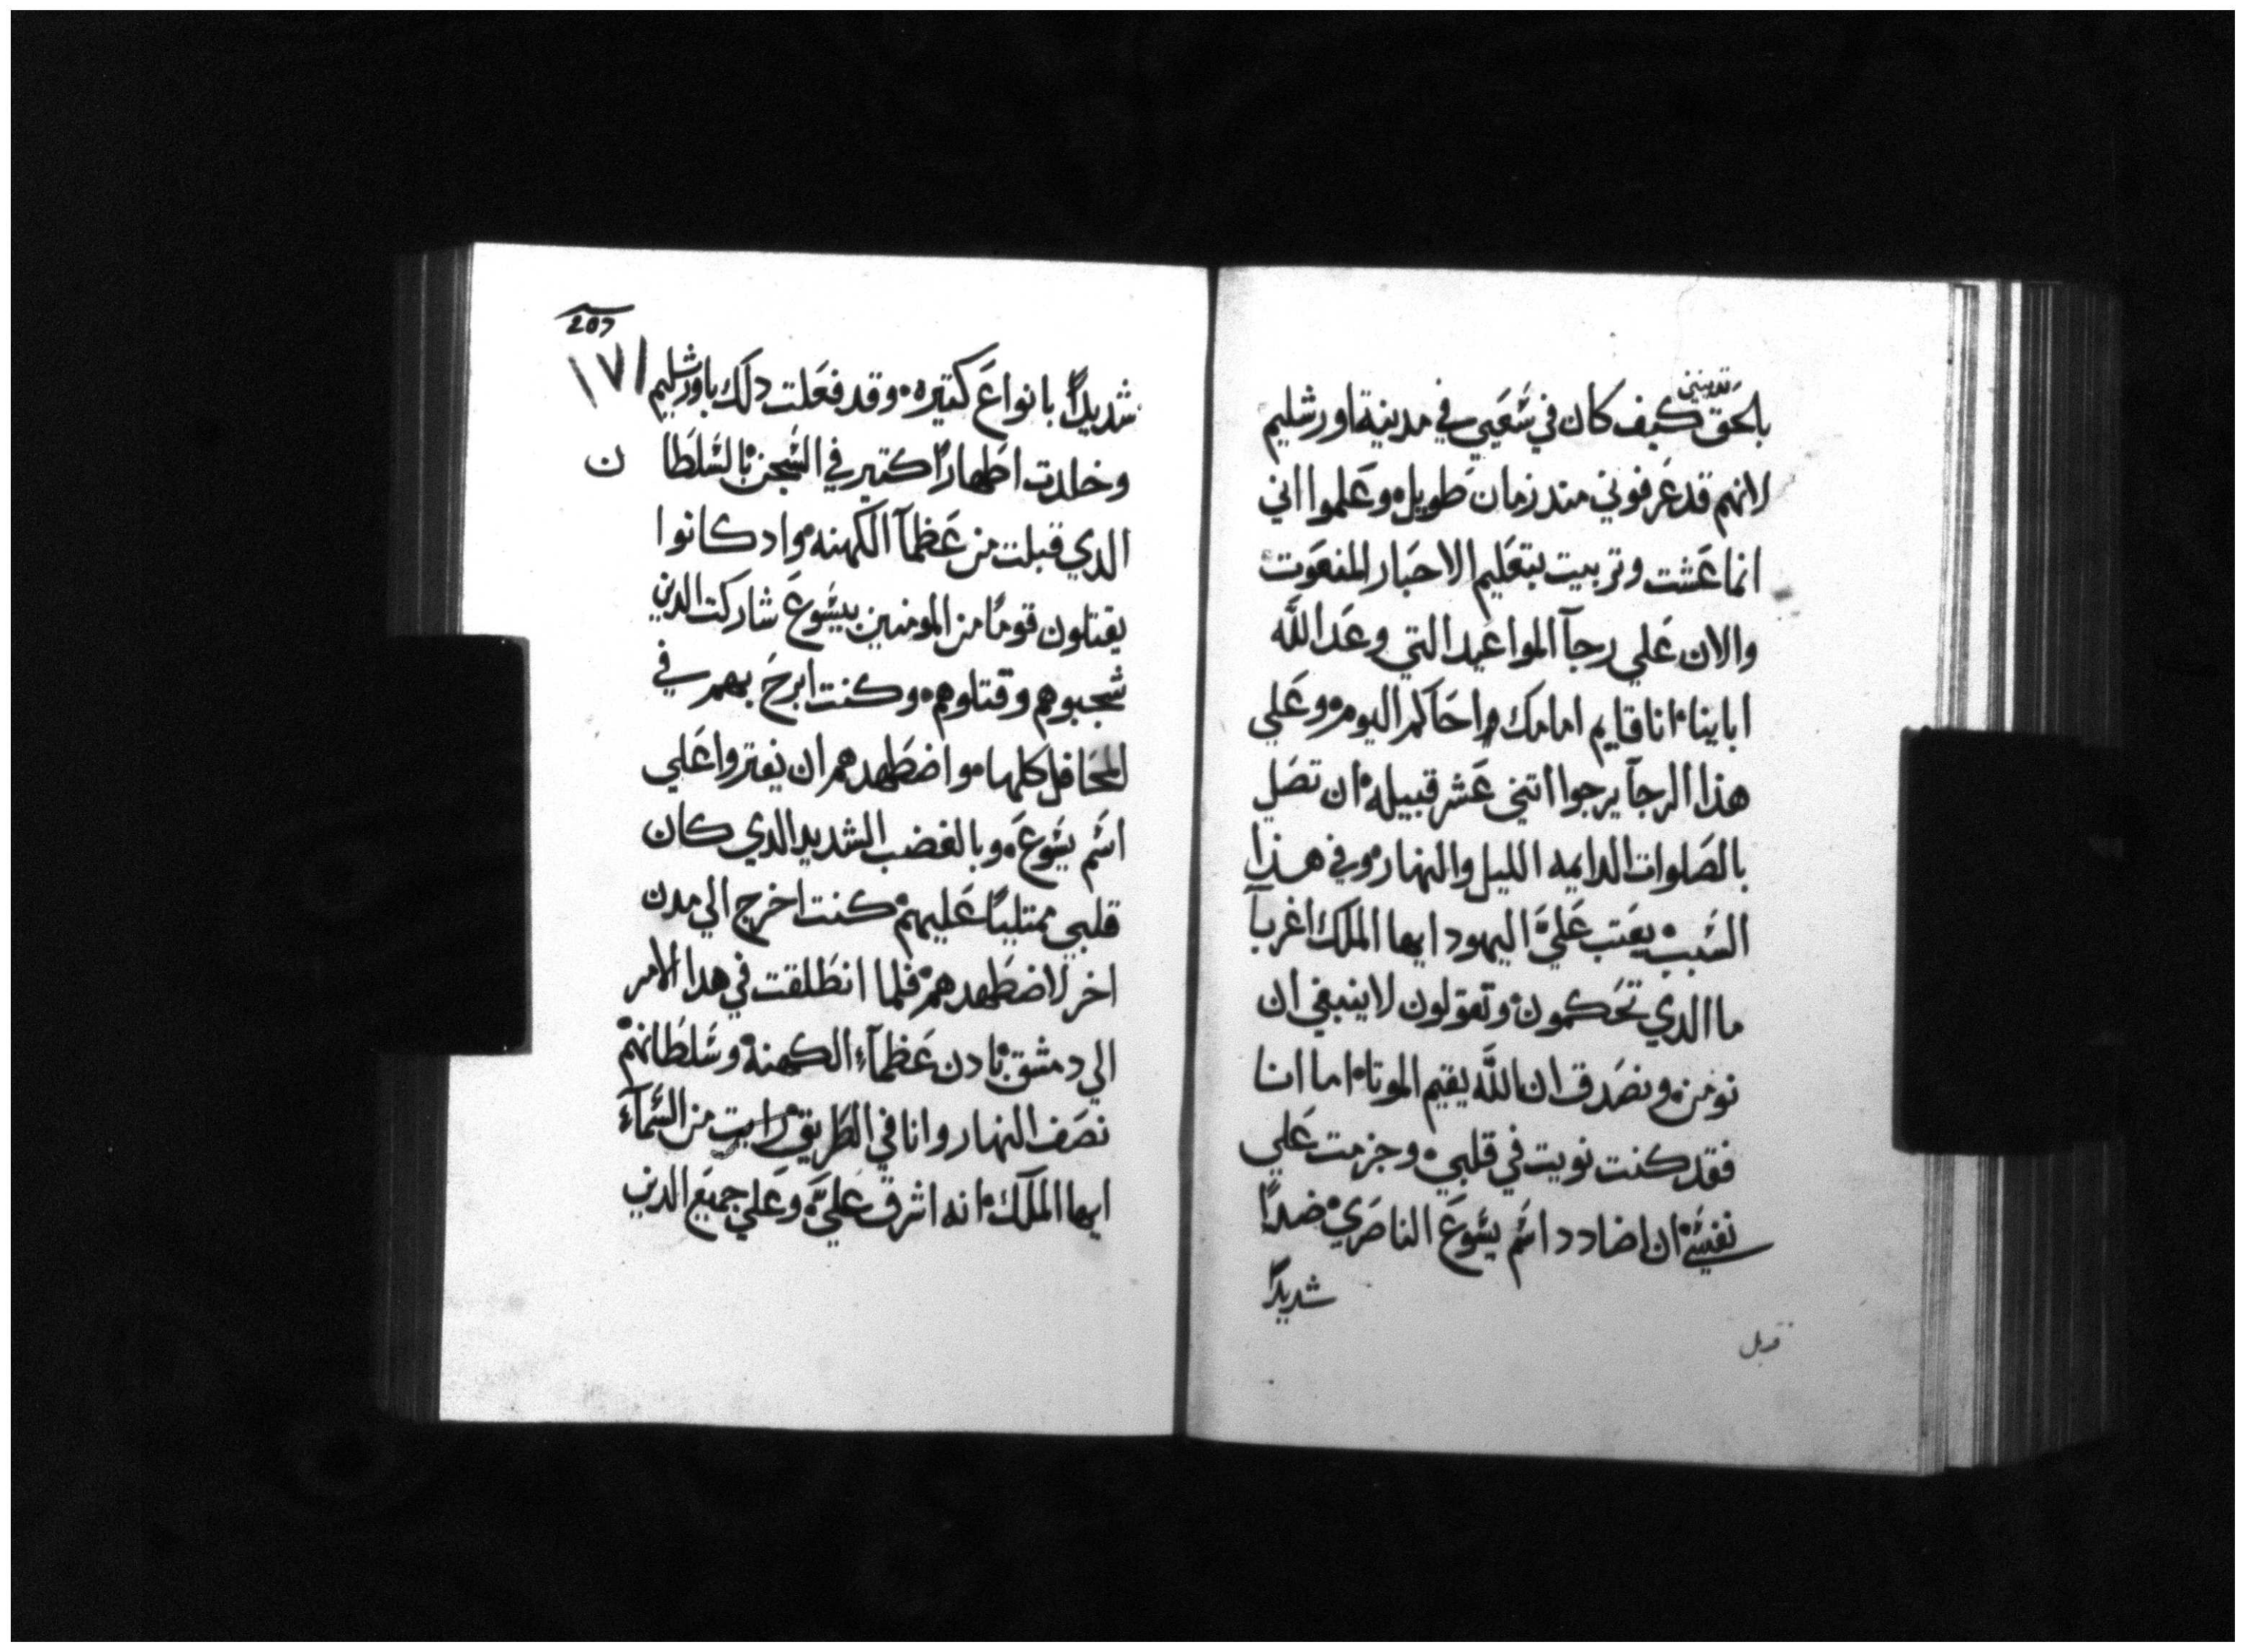 تدينني
بالحق كيف كان في شعبي في مدينة اورشليم
لانهم قد عرفوني مند زمان طويل وعلموا اني
انما عشت وتربيت بتعليم الاحبار المنعوت
والان علي رجآ المواعيد التي وعد الله
اباينا انا قايم امامك واحاكم اليوم وعلي
هذا الرجآ يرجوا اتني عشر قبيله ان تصل
بالصلوات الدايمه الليل والنهار وفي هذا
السبب يعتب علي اليهود ايها الملك اغربآ
ما الدي تحكمون وتقولون لا ينبغي ان
نومن ونصدق ان الله يقيم الموتا اما انا
فقد كنت نويت في قلبي وجزمت علي
نفسي ان اضادد اسم يسوع الناصري ضدًا
شديدًا
207
١٧١
شديدًا بانواع كتيره وقد فعلت دلك باورشليم
وخلدت اطهارًا كتير في السجن بالسلطان
الدي قبلت من عظمآ الكهنه واد كانوا
يقتلون قومًا من المومنين بيسوع شاركت الدين
شجبوهم وقتلوهم وكنت ابرح بهم في
المحافل كلها واضطهدهم ان يفتروا علي
اسم يسوع وبالغضب الشديد الدي كان
قلبي ممتليًا عليهم كنت اخرج الي مدن
اخر لاضطهدهم فلما انطلقت في هدا الامر
الي دمشق بادن عظمآء الكهنة وسلطانهم
نصف النهار وانا في الطريق رايت من السمآء
ايها الملك انه اشرق علي وعلي جميع الدين